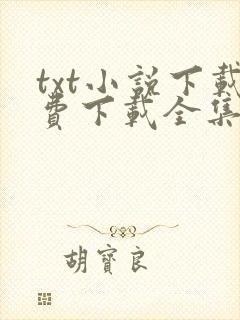 txt小説下載
費下載全集
胡寶良